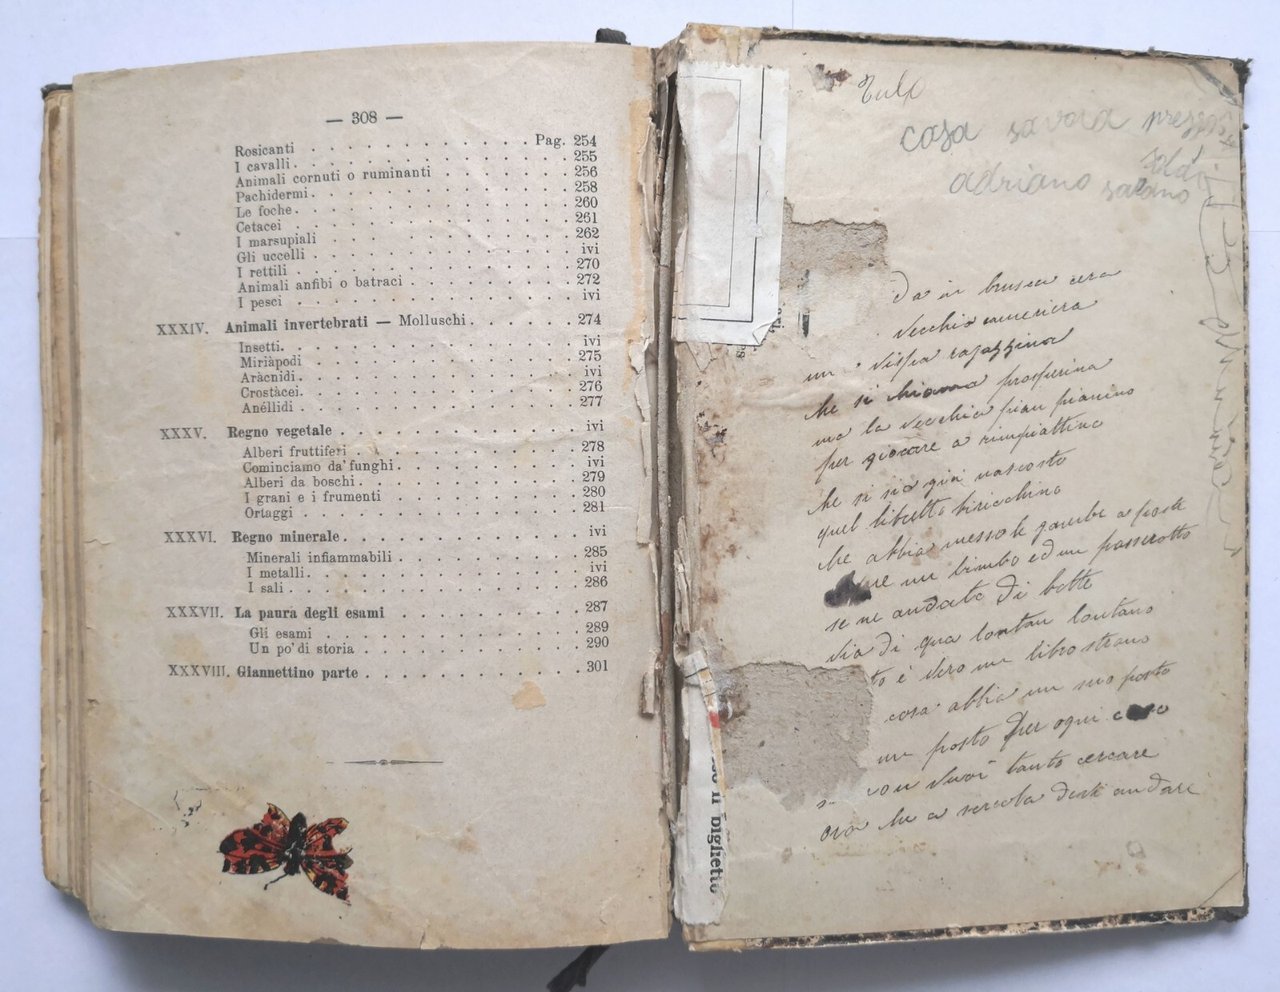 — 308 —
Rosicanti . . . . . . . . . . . . . Pag. 254
I cavalli . . . . . . . . . . . . . 255
Animali cornuti o ruminanti . . . . . . . 256
Pachidermi . . . . . . . . . . . . . 258
Le foche . . . . . . . . . . . . . 260
Cetacei . . . . . . . . . . . . . 261
I marsupiali . . . . . . . . . . . . . 262
Gli uccelli . . . . . . . . . . . . . ivi
I rettili . . . . . . . . . . . . . 270
Animali anfibi o batraci . . . . . . . . . 272
I pesci . . . . . . . . . . . . . ivi
XXXIV. Animali invertebrati — Molluschi . . . . . . 274
Insetti . . . . . . . . . . . . . ivi
Miriàpodi . . . . . . . . . . . . . 275
Aràcnidi . . . . . . . . . . . . . ivi
Crostàcei . . . . . . . . . . . . . 276
Anéllidi . . . . . . . . . . . . . 277
XXXV. Regno vegetale . . . . . . . . . . . . ivi
Alberi fruttiferi . . . . . . . . . . . . 278
Cominciamo da' funghi . . . . . . . . . . ivi
Alberi da boschi . . . . . . . . . . . . 279
I grani e i frumenti . . . . . . . . . . 280
Ortaggi . . . . . . . . . . . . . 281
XXXVI. Regno minerale . . . . . . . . . . . . ivi
Minerali infiammabili . . . . . . . . . . 285
I metalli . . . . . . . . . . . . . ivi
I sali . . . . . . . . . . . . . 286
XXXVII. La paura degli esami . . . . . . . . . 287
Gli esami . . . . . . . . . . . . . 289
Un po' di storia . . . . . . . . . . . . 290
XXXVIII. Giannettino parte . . . . . . . . . . . 301
casa savoia
adriano
da in brusca cera
vecchia cameriera
un vispa ragazzina
che si chiama prosperina
ma la vecchia pian pianino
per giocare a rimpiattino
che si sia già nascosto
quel libretto biricchino
che abbia messo le gambe a posta
me un bimbo ed un passerotto
se ne andato di botto
via di qua lontan lontano
to è vero un libro strano
cosa abbia un suo posto
un posto per ogni caso
non vuoi tanto cercare
ora che a scuola devi andare
il biglietto